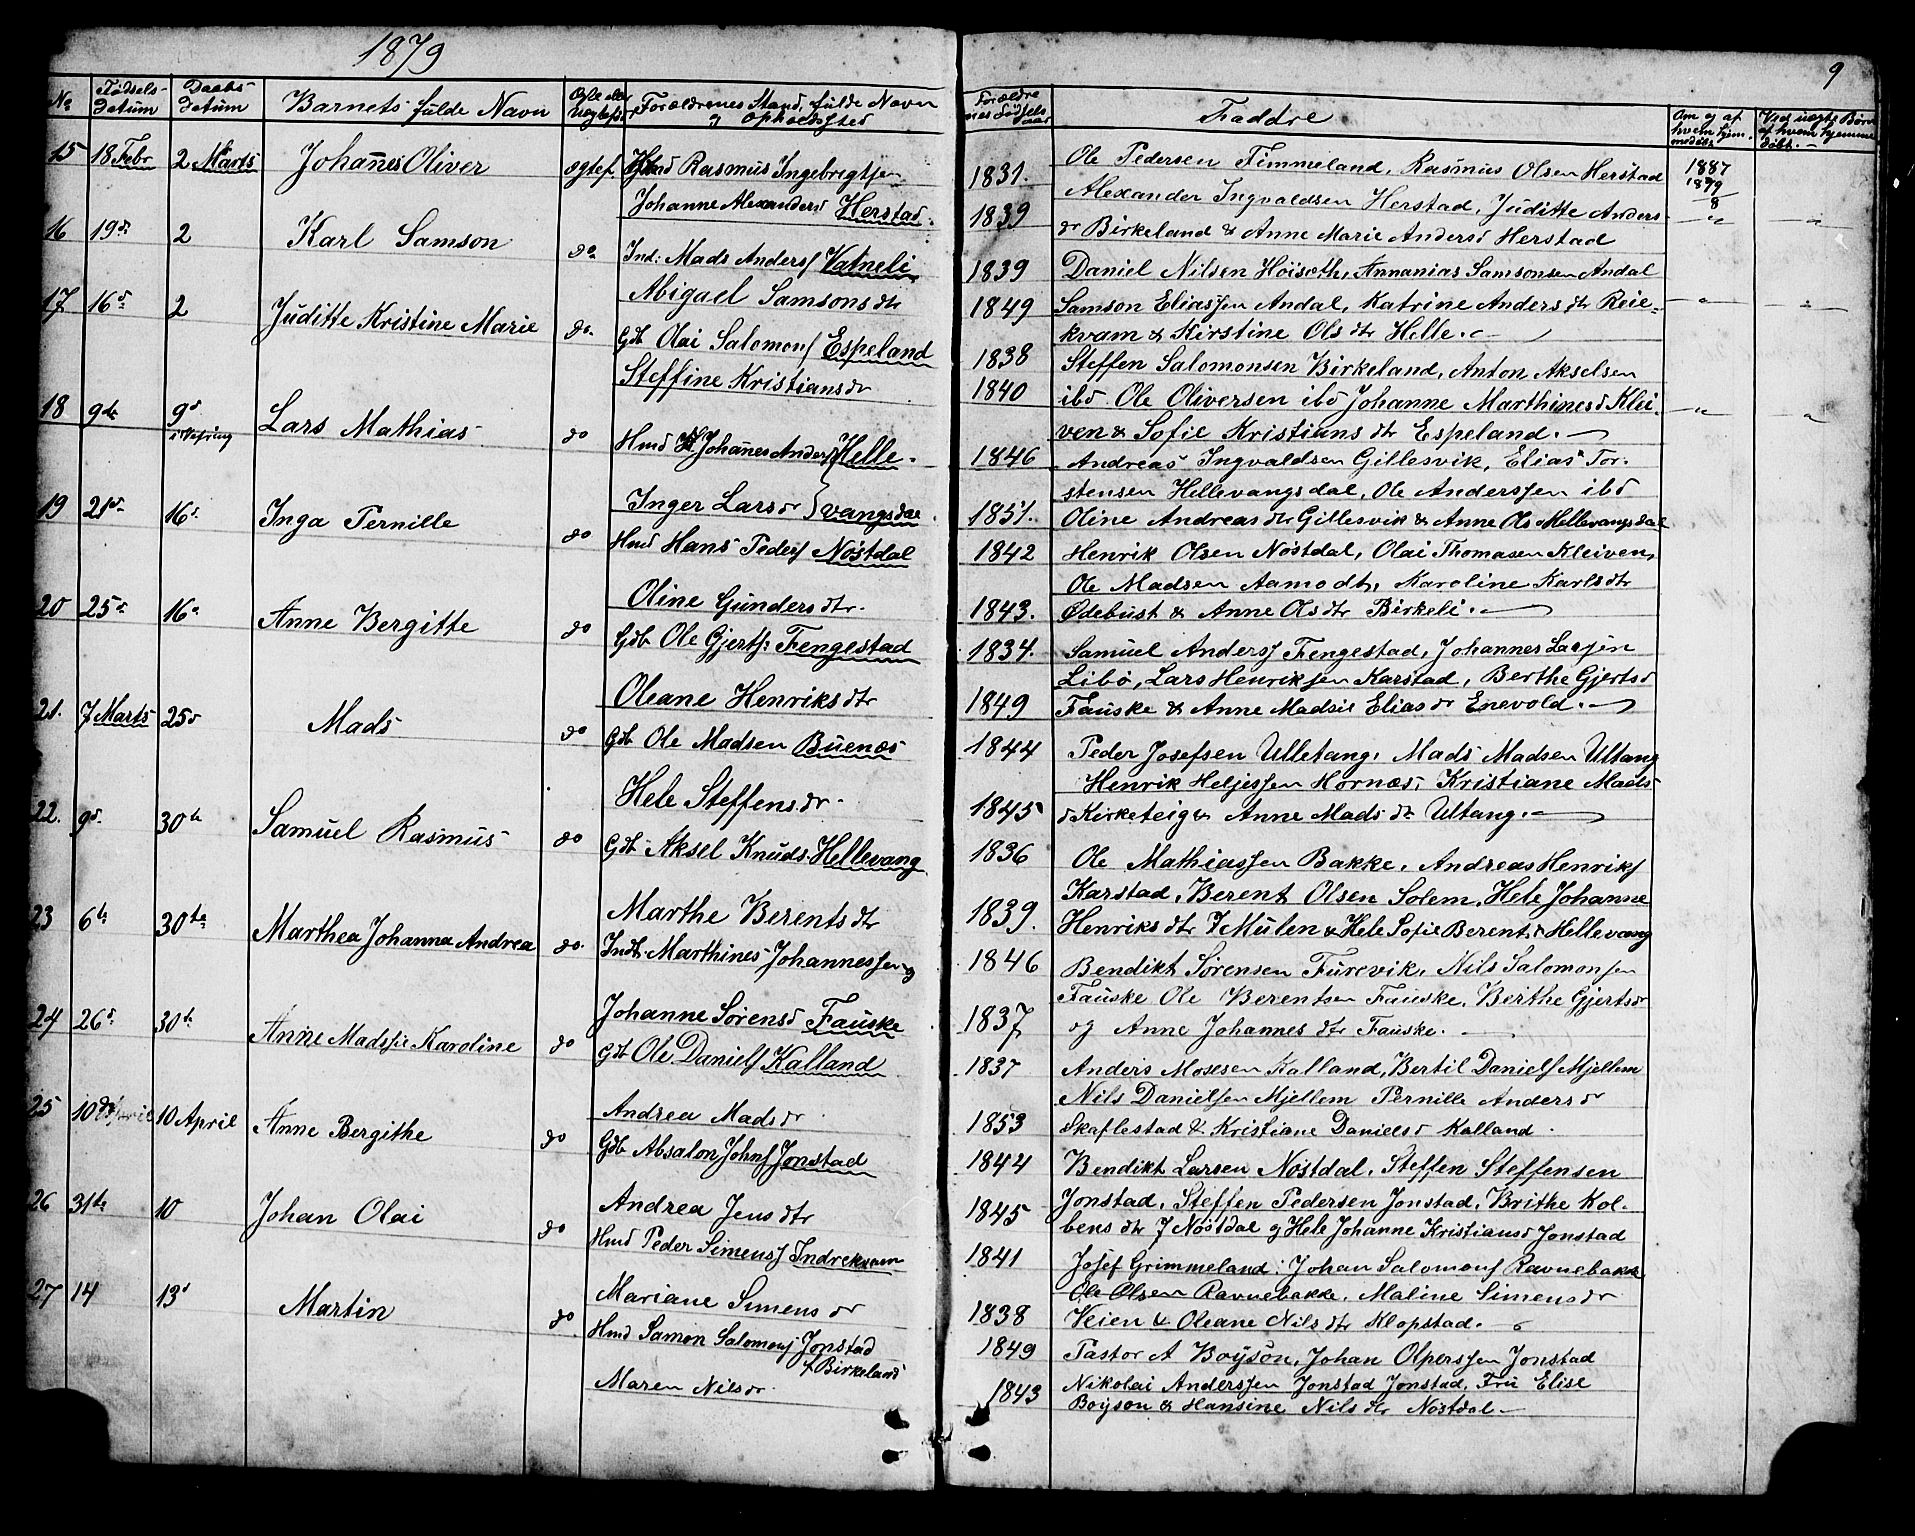 1879
9
No Fødsels-datum Daabs-datum Barnets fulde Navn Ægte eller Uægtefød Forældrenes Stand, fulde Navn og Opholdsted
Forældrenes Fødselsaar Faddre Om og af hvem hjemmedøbt Ved uægte Børn af hvem hjemmedøbt.
15 18 Febr 2 Marts Johannes Oliver ægtef. Hmd Rasmus Ingebrigtsen
Johanne Alexandersd Herstad.
1831. Ole Pedersen Fimmeland, Rasmus Olsen Herstad
Alexander Ingvaldsen Herstad, Juditte Anders-
1839 dr Birkeland & Anne Marie Andersd Herstad
1887
1879/8
16 19d. 2 Karl Samson do. Ind: Mads Anders Vatneli
Abigael Samsonsdtr
1839 Daniel Nilsen Höisæth, Annanias Samsonsen Andal
1849 Samson Eliassen Andal, Katrine Anders dtr Reie-
kvam & Kirstine Ols dtr Helle.
17 16d. 2 Juditte Kristine Marie do. Gdb Olai Salomons Espeland
Steffine Kristiansdr
1838 Steffen Salomonsen Birkeland, Anton Akselsen
1840 ibd. Ole Oliversen ibd Johanne Marthinesd Klei-
ven & Sofie Kristians dtr Espeland.
18 9de 9d i Vefring Lars Mathias do Hmd Johannes Anders Helle-
Inger Larsdr vangsdal.
1846 Andreas Ingvaldsen Gillesvik, Elias Tor-
stensen Hellevangsdal, Ole Anderssen ibd
1851. Oline Andreas dtr Gillesvik & Anne Olsd Hellevangsdal
19 21d. 16d. Inga Pernille do Hmd Hans Peders Nöstdal
Oline Gundersdtr.
1842 Henrik Olsen Nöstdal, Olai Thomasen Kleiven,
Ole Madsen Aamodt, Karoline Karlsdtr
1843. Ødebust & Anne Olsdtr Birkeli.
20 25d. 16d. Anne Bergitte do Gdb Ole Gjerts. Fengestad
Oleane Henriksdtr
1834. Samuel Anders Fengestad, Johannes Larsen
Libö, Lars Henriksen Karstad, Berthe Gjertsd
1849 Fauske & Anne Madsie Eliasdr Enevold.
21. 7 Marts 25d Mads do Gdb Ole Madsen Buenæs
Hele Steffensdr.
1844 Peder Josefsen Ulletang, Mads Madsen Ultang
Henrik Heljessen Hornæs, Kristiane Mads-
1845 d Kirketeig & Anne Mads dtr Ultang.
22. 9d. 30te Samuel Rasmus do Gdb. Aksel Knuds. Hellevang
Marthe Berentsdtr
1836 Ole Mathiassen Bakke, Andreas Henriks
Karstad, Berent Olsen Solem, Hele Johanne
1839. Henriks dtr Mulen & Hele Sofie Berentsd Hellevang
23 6te 30te Marthea Johanna Andrea do. Indb. Marthines Johannessen
Johanne Sørensd Fauske
1846 Bendikt Sørensen Furevik, Nils Salomonsen
Fauske Ole Berentsen Fauske, Berthe Gjertsdr
1837 og Anne Johannes dtr Fauske.
24 26d. 30te Anne Madssie Karoline do Gdb Ole Daniels Kalland
Andrea Madsdr
1837 Anders Mosesen Kalland, Bertil Daniels Mjellem
Nils Danielsen Mjellem Pernille Andersdr
1853 Skaflestad & Kristiane Danielsd Kalland.
25 10de April 10 April Anne Bergithe do Gdb Absalon Johns Jonstad
Andrea Jensdtr
1844 Bendikt Larsen Nöstdal, Steffen Steffensen
1845 Jonstad, Steffen Pedersen Jonstad, Brithe Kol-
bens dtr Nöstdal og Hele Johanne Kristiansd Jonstad
26 31te 10 Johan Olai do Hmd Peder Simens Indrekvam
Mariane Simensdr
1841 Josef Grimmeland: Johan Salomons Ravnebakke
Ole Olsen Ravnebakke, Maline Simensdr
1838 Veien & Oleane Nils dtr Klopstad.
27 14 13d Martin do. Hmd Samon Salomons Jonstad
f Birkeland
Maren Nilsdr.
1849 Pastor A Boÿson, Johan Olperssen Jonstad
1843 Nikolai Anderssen Jonstad Jonstad, Fru Elise
Boÿson & Hansine Nils dtr Nöstdal